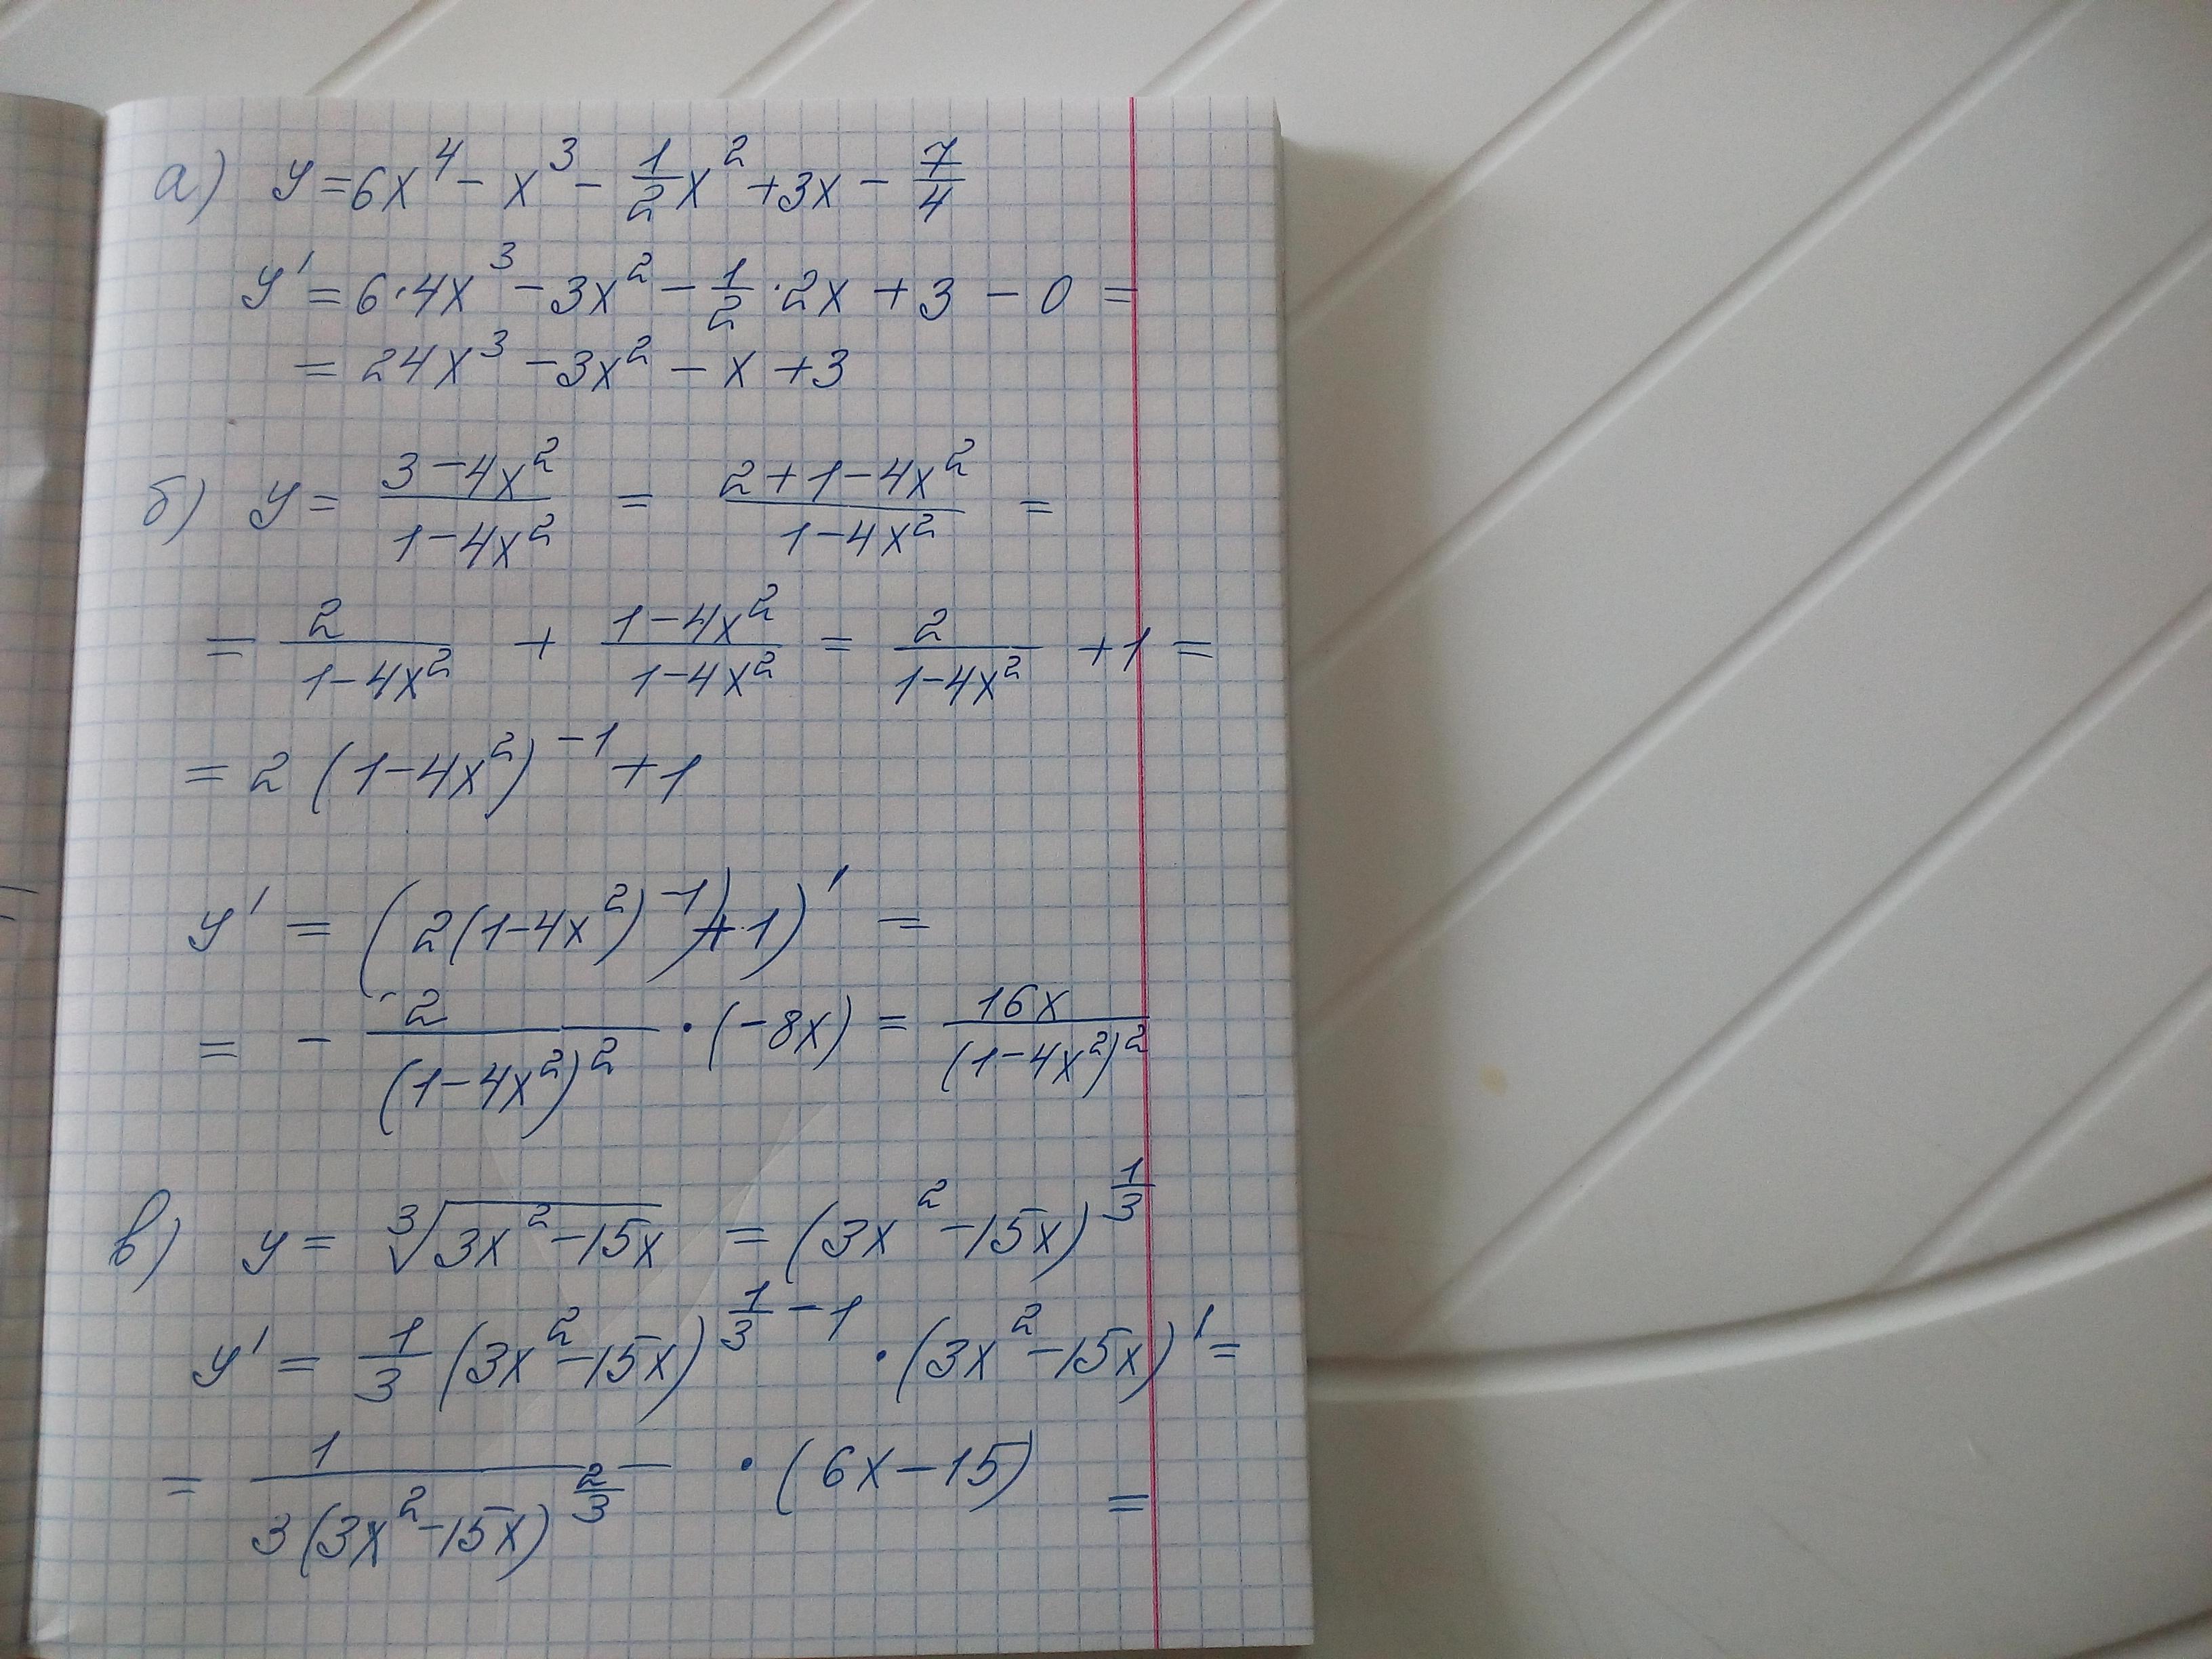 а) y = 6x⁴ - x³ - 1/2 x² + 3x - 7/4
y' = 6·4x³ - 3x² - 1/2 · 2x + 3 - 0 =
= 24x³ - 3x² - x + 3
б) y = (3-4x²)/(1-4x²) = (2+1-4x²)/(1-4x²) =
= 2/(1-4x²) + (1-4x²)/(1-4x²) = 2/(1-4x²) + 1 =
= 2(1-4x²)⁻¹ + 1
y' = (2(1-4x²)⁻¹) + 1)' =
= - 2/(1-4x²)² · (-8x) = 16x/(1-4x²)²
в) y = ∛(3x²-15x) = (3x²-15x)^(1/3)
y' = 1/3 (3x²-15x)^(1/3 - 1) · (3x²-15x)' =
= 1/(3(3x²-15x)^(2/3)) · (6x-15) =